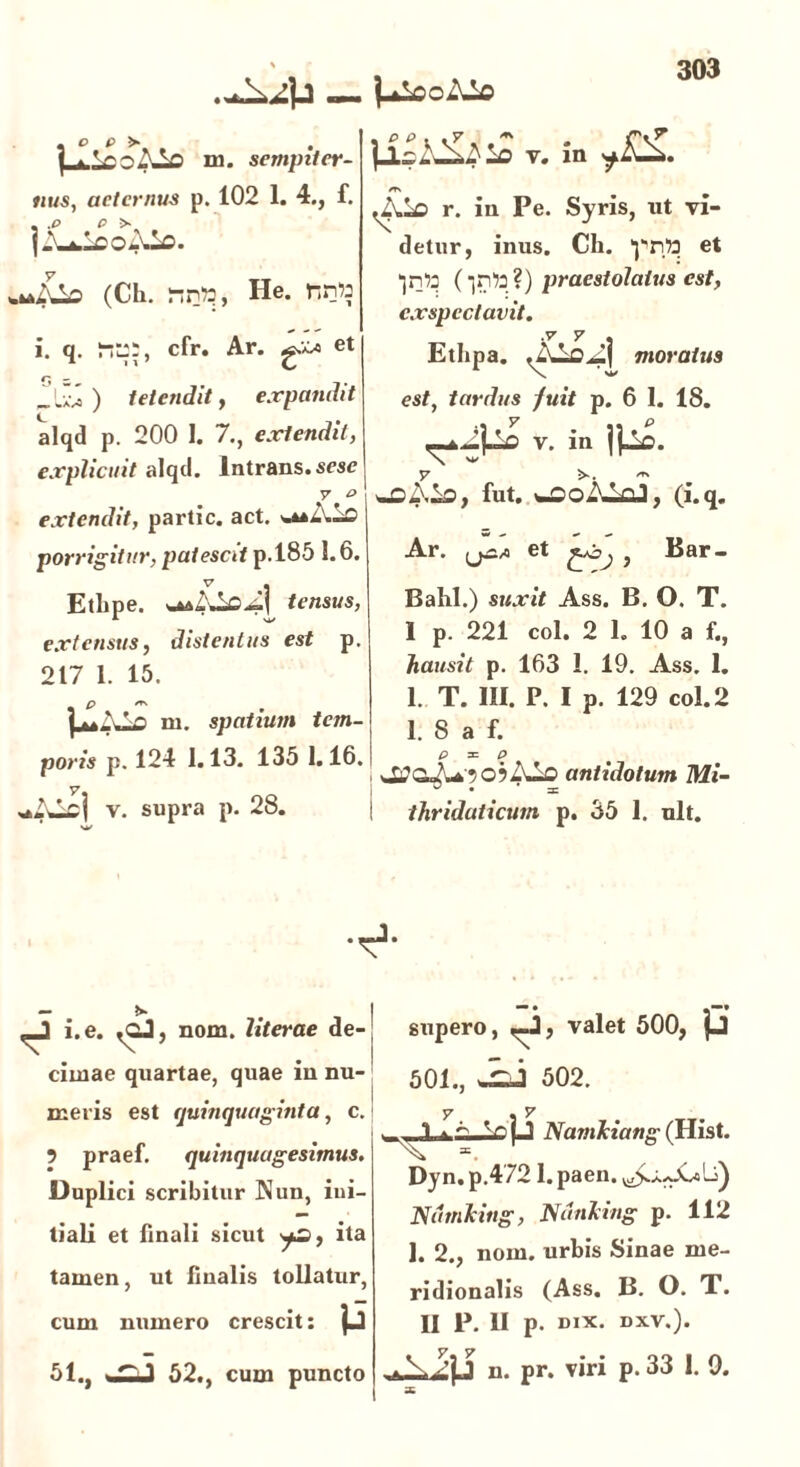 303
ܡܬܘܡܝܐ —
ܡܬܘܡܝܐ m. sempiter-
nus, aeternus p. 102 l. 4., f.
ܡܬܘܡܝܬܐ.
ܡܬܚ (Ch. מתח, He. מתח
i. q. נטה, cfr. Ar. متح et
) tetendit, expandit
alqd p. 200 l. 7., extendit,
explicuit alqd. Intrans. sese
extendit, partic. act. ܡܬܚ
porrigitur, patescit p.185 l.6.
Ethpe. ܐܬܡܬܚ tensus,
extensus, distentus est p.
217 l. 15.
ܡܬܚܐ m. spatium tem-
poris p. 124 l.13. 135 l.16.
ܐܡܬܝ v. supra p. 28.
v. in
ܡܬܢ r. in Pe. Syris, ut vi-
detur, inus. Ch. מתין et
מתן (מתן?) praestolatus est,
exspectavit.
Ethpa. ܐܬܡܬܢ moratus
est, tardus fuit p. 6 l. 18.
v. in ܡܐܐ.
ܡܬܩ, fut. ܢܡܬܘܩ, (i.q.
Ar. مص et رضع, Bar-
Bahl.) suxit Ass. B. O. T.
I p. 221 col. 2 l. 10 a f.,
hausit p. 163 l. 19. Ass. l.
l. T. III. P. I p. 129 col.2
l. 8 a f.
antidotum Mi-
thridaticum p. 35 l. ult.
.ܢ.
ܢ i.e. ܢܘܢ, nom. literae de-
cimae quartae, quae in nu-
meris est quinquaginta, c.
ܕ praef. quinquagesimus.
Duplici scribitur Nun, ini-
tiali et finali sicut ܟܡ, ita
tamen, ut finalis tollatur,
cum numero crescit: ܢܐ
51., ܢܒ 52., cum puncto
supero, ܢ, valet 500, ܢܐ
501., ܢܒ 502.
ܢܐܡܟܝܢܓ Namkiang (Hist.
Dyn. p.472 l. paen. نامكينك)
Námking, Nánking p. 112
l. 2., nom. urbis Sinae me-
ridionalis (Ass. B. O. T.
II P. II p. DIX. DXV.).
n. pr. viri p. 33 l. 9.